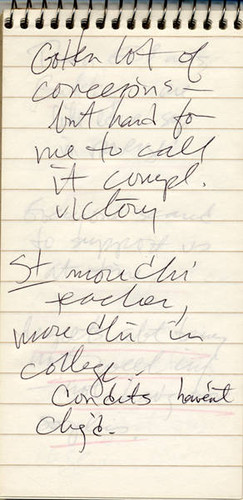 Gotten lot of
concepins –
but hard for
me to call
it compl.
victory
St more chi
teacher,
more chi in
college
Condits haven't
chg'd.